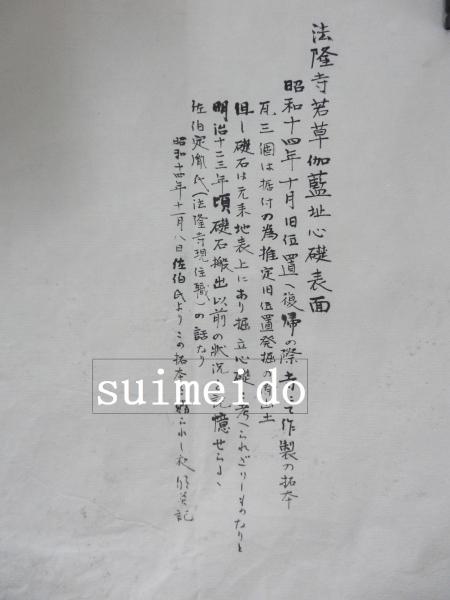 法隆寺若草伽藍址心礎表面
昭和十四年十月旧位置へ復帰の際寺にて作製の拓本
瓦三個は据付の為推定旧位置発掘の出土
但し礎石は元来地表上にあり掘立心礎とは考へられざりしものなりと
明治十二三年頃礎石搬出以前の状況を記憶せらるゝ
佐伯定胤氏(法隆寺現住職)の話なり
昭和十四年十一月八日佐伯氏よりこの拓本を贈られし
記
suimeido